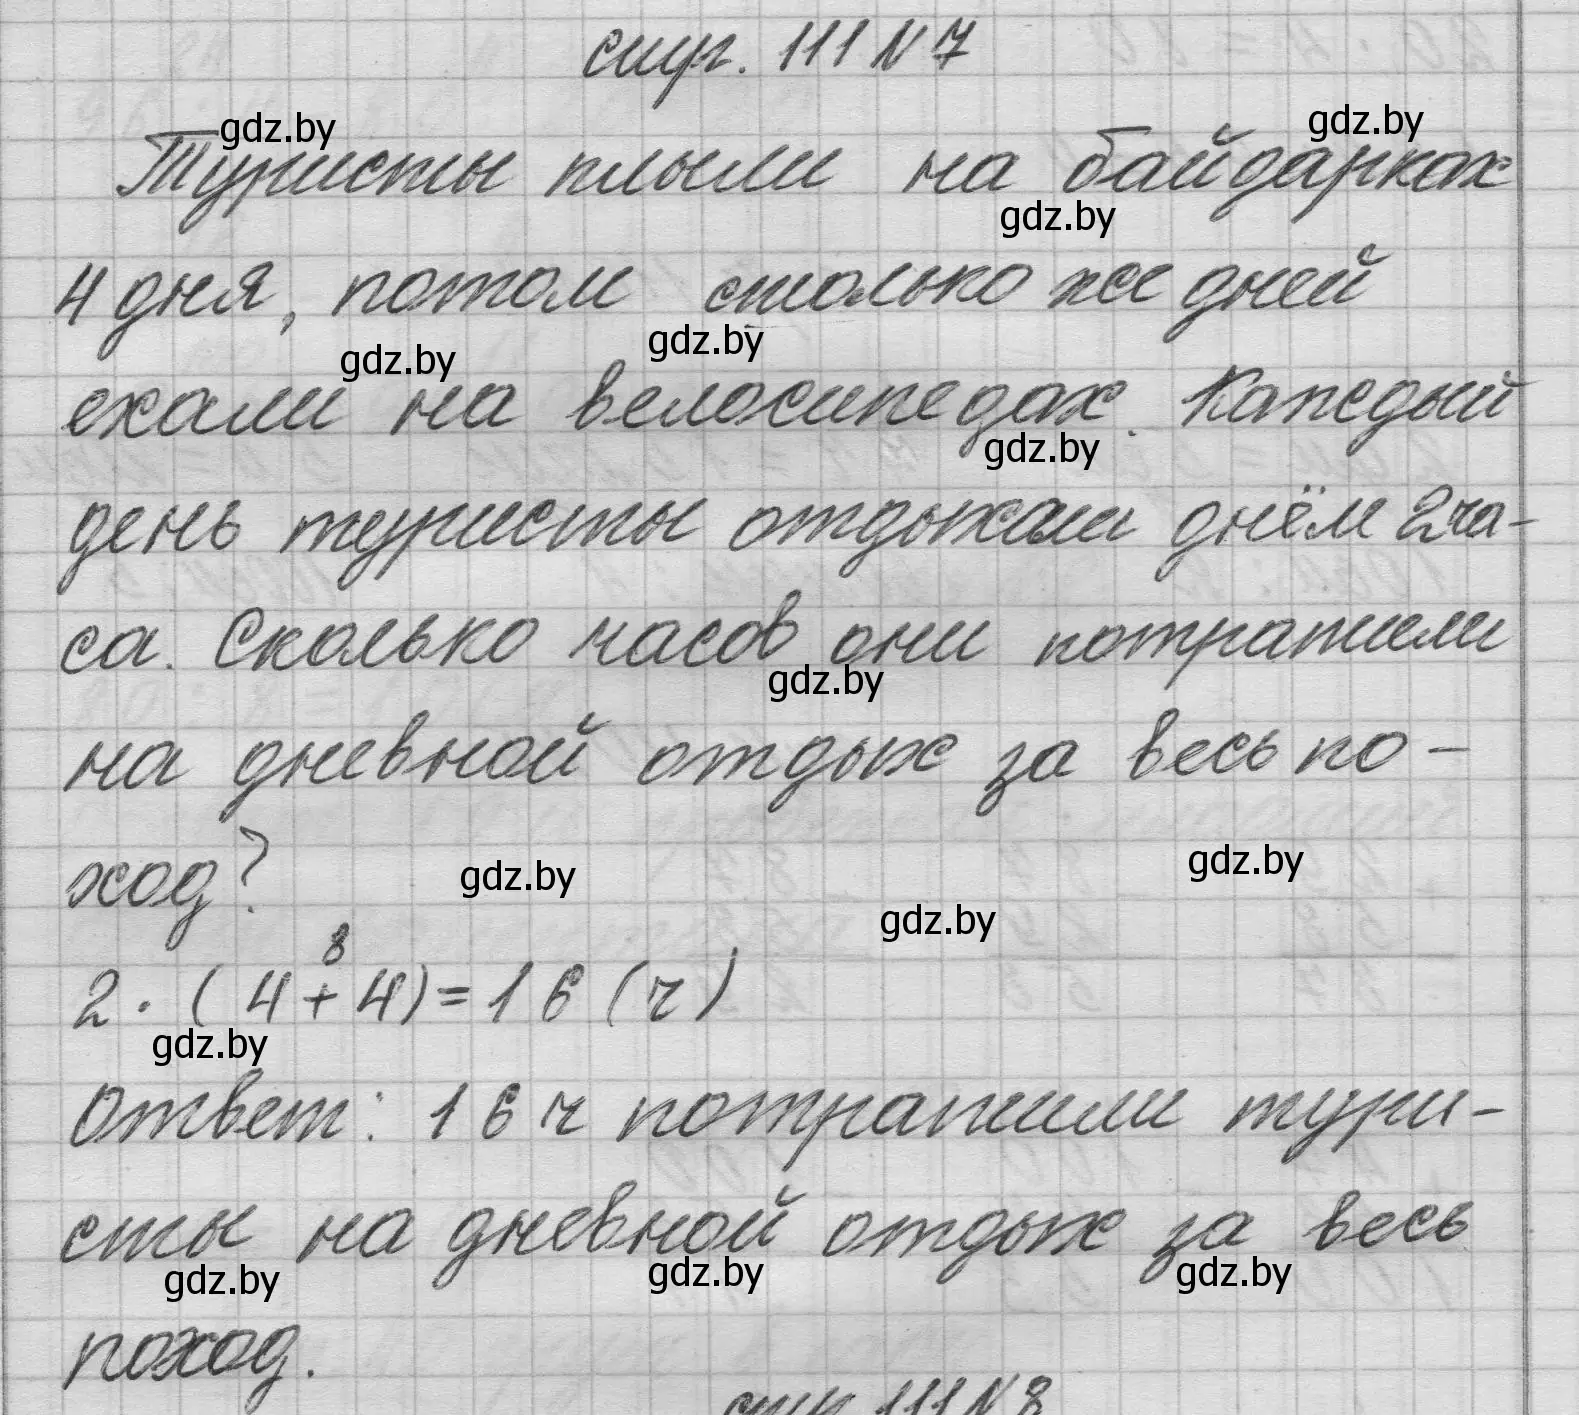 стр. 111 N 7
gdz.by gdz.by
Туристы плыли на байдарках
gdz.by
4 дня, потом столько же дней
gdz.by gdz.by
ехали на велосипедах. Каждый
gdz.by
день туристы отдыхали днём 2 ча-
са. Сколько часов они потратили
gdz.by
на дневной отдых за весь по-
ход?
gdz.by gdz.by
gdz.by
8
2 · (4 + 4) = 16 (ч)
gdz.by
Ответ: 16 ч потратили тури-
сты на дневной отдых за весь
gdz.by gdz.by gdz.by
поход.
стр. 111 N 8